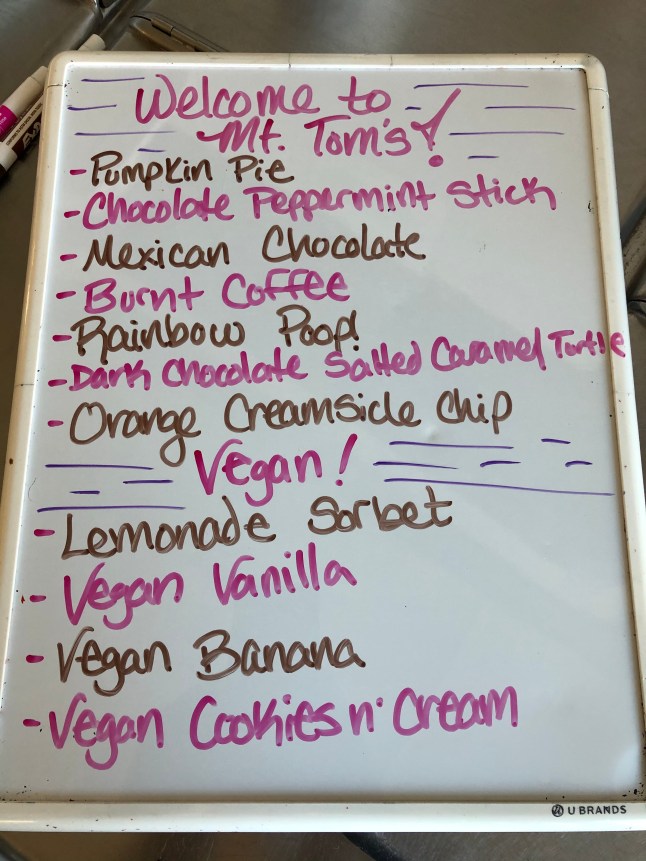 Welcome to
Mt. Tom's!
- Pumpkin Pie
- Chocolate Peppermint Stick
- Mexican Chocolate
- Burnt Coffee
- Rainbow Poop!
- Dark Chocolate Salted Caramel Turtle
- Orange Creamsicle Chip
Vegan!
- Lemonade Sorbet
- Vegan Vanilla
- Vegan Banana
- Vegan Cookies n' Cream
U BRANDS